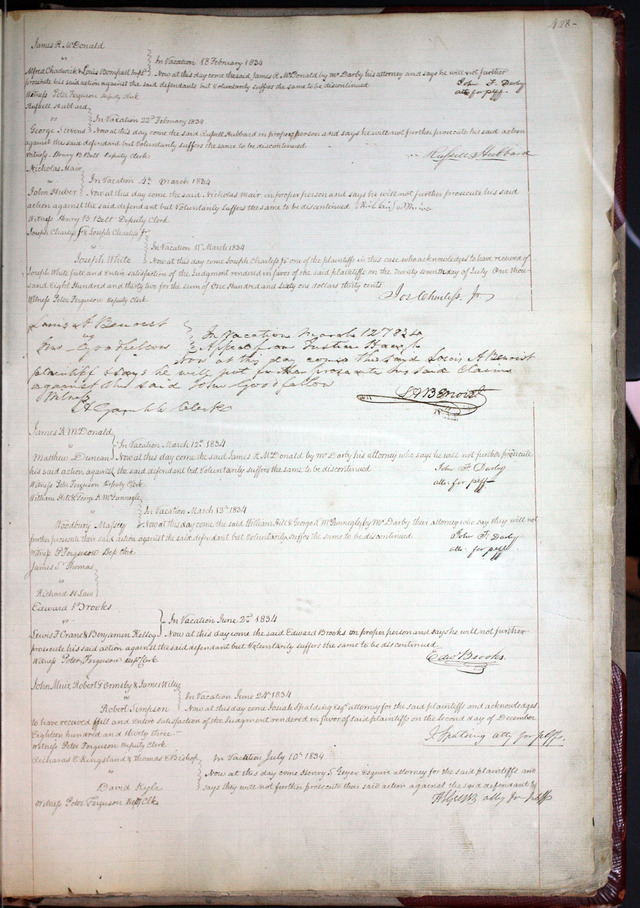 428-
James R. McDonald
vs
In Vacation 18 February 1834
Alfred Chadwick & Louis Bompart Now at this day come the said, James R. McDonald by mr Darby his attorney and says he will not further
prosecute his said action against the said defendants but Voluntarily suffers the same to be discontinued
John F. Darby
Witness Peter Ferguson Deputy Clerk
atto for plff.
Russell Hubbard
vs
In Vacation 22d February 1834
George Stevens Now at this day come the said Russell Hubbard in proper person and says he will not further prosecute his said action
against the said defendant but Voluntarily suffers the same to be discontinued
Witness. Henry B. Belt Deputy Clerk.
Russell Hubbard
Nicholas Mair
vs
In Vacation 4th March 1834
John Huber Now at this day come the said Nicholas Mair in proper person and says he will not further prosecute his said
action against the said defendant but Voluntarily suffers the same to be discontinued
Witness Henry B. Belt Deputy Clerk
Joseph Charless Jr & Joseph Charless
vs
In Vacation 11th March 1834
Joseph White Now at this day come Joseph Charless Jr one of the plaintiffs in this case who acknowledges to have received of
Joseph White full and entire satisfaction of the Judgment rendered in favor of the said plaintiffs on the Twenty seventh day of July One thou-
sand Eight Hundred and thirty two for the sum of One Hundred and Sixty one dollars thirty cents
Witness Peter Ferguson Deputy Clerk
Jos Charless Jr
Louis A Benoist
vs
In Vacation March 12 1834
Jno Goodfellow
Appeal from Justice
Now at this day comes the said Louis A Benoist
plaintiff & says he will not further prosecute his said Claim
against the said John Goodfellow
Witness
L A Benoist
H Gamble Clerk
James R McDonald
vs
In Vacation March 12th 1834
Matthew Duncan Now at this day come the said James R. McDonald by mr Darby his attorney who says he will not further prosecute
his said action against the said defendant but Voluntarily suffers the same to be discontinued
John F Darby
Witness Peter Ferguson Deputy Clerk
atto for plff
William Hill & George K McGunnegle
vs
In Vacation March 13th 1834
Woodbury Massey Now at this day come the said William Hill & George K McGunnegle by Mr Darby their attorney who say they will not
further prosecute their said action against the said defendant but Voluntarily suffers the same to be discontinued
John F. Darby
Witness P. Ferguson Dep Clk
atto for plff
James S Thomas
vs
Richard H Law
Edward Brooks
vs
In Vacation June 2nd 1834
Lewis J Crane & Benjamin Kelley Now at this day come the said Edward Brooks on proper person and says he will not further
prosecute his said action against the said defendant but Voluntarily suffers the same to be discontinued.
Witness Peter Ferguson Depy Clerk
Edwd Brooks.
John Muir Robert G Ormsby & James Wiley
vs
In Vacation June 24th 1834
Robert Simpson Now at this day come Josiah Spalding Esqr attorney for the said plaintiffs and acknowledges
to have received full and entire satisfaction of the Judgment rendered in favor of said plaintiffs on the Second day of December
Eighteen hundred and thirty three
Witness Peter Ferguson Deputy Clerk
J Spalding atty for plffs.
Kingsland & Thomas E Bishop
In Vacation July 10th 1834
vs
Now at this day come Henry S. Geyer Esquire attorney for the said plaintiffs and
David Kyle
says they will not further prosecute their said action against the said defendant
Witness Peter Ferguson Depty Clk
H S Geyer, atty for plff